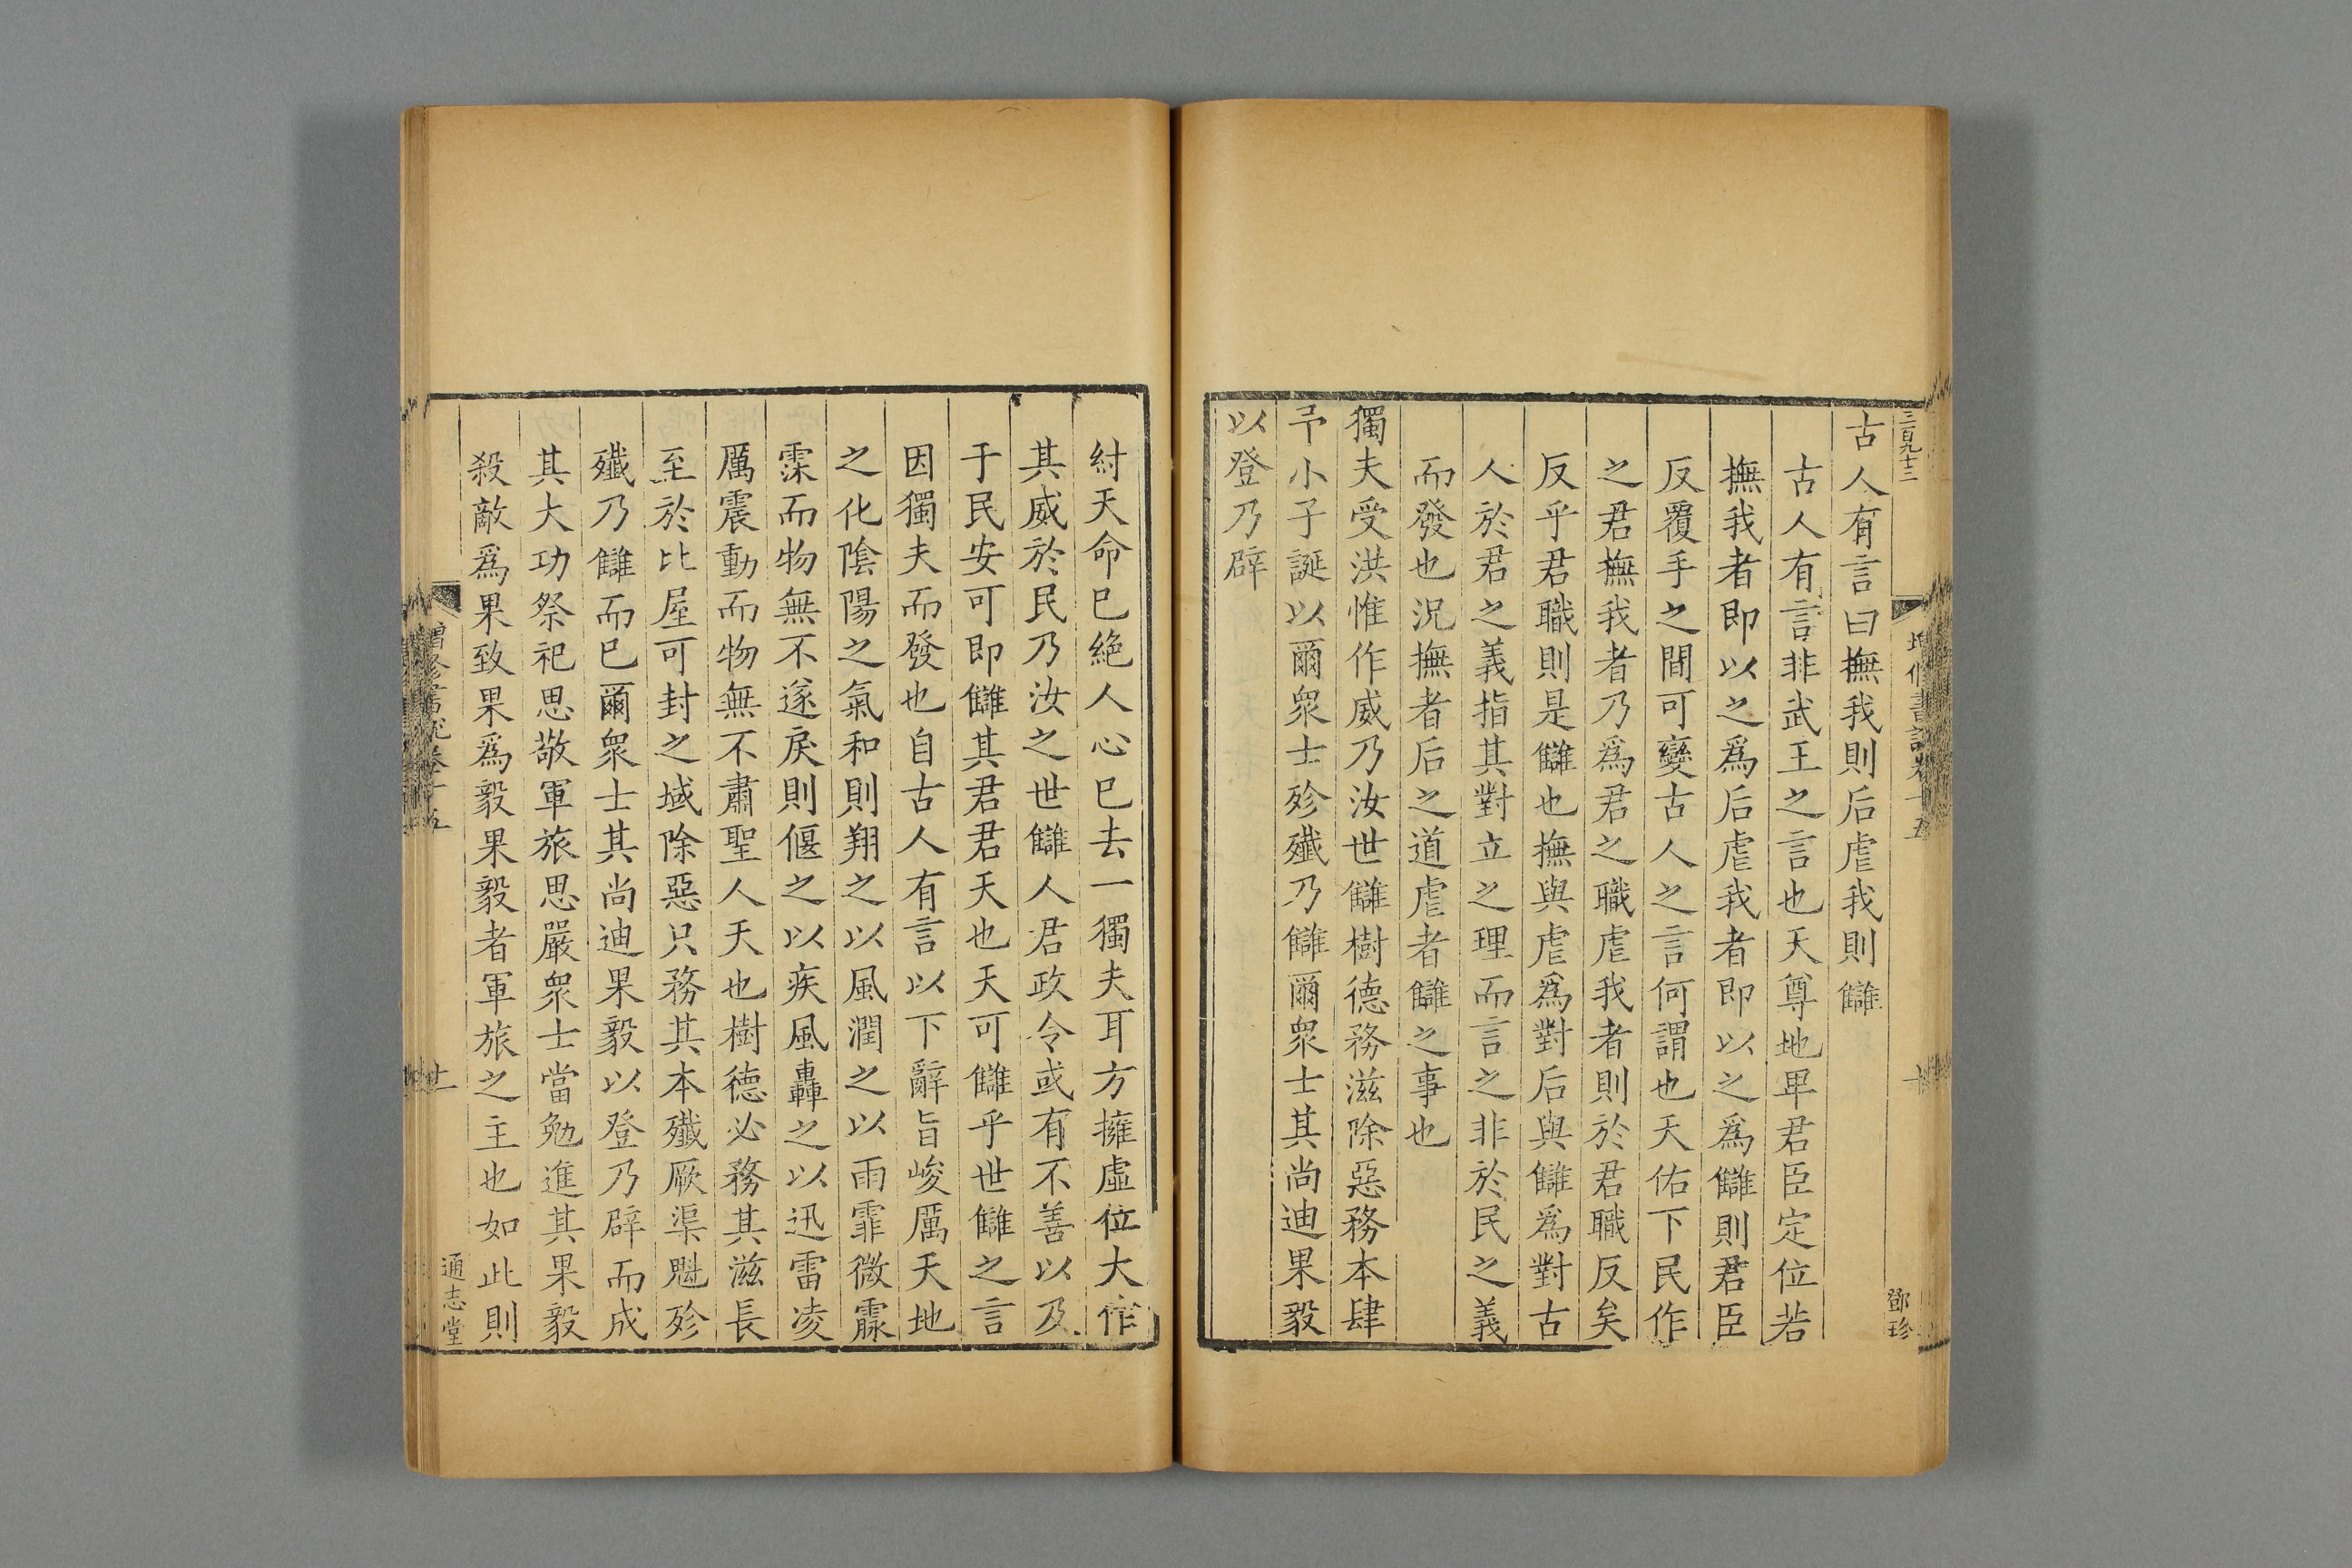 三百九十三
增修書說卷十五
十
鄧珍
古人有言曰撫我則后虐我則讎
古人有言非武王之言也天尊地卑君臣定位若
撫我者即以之爲后虐我者即以之爲讎則君臣
反覆手之間可變古人之言何謂也天佑下民作
之君撫我者乃爲君之職虐我者則於君職反矣
反乎君職則是讎也撫與虐爲對后與讎爲對古
人於君之義指其對立之理而言之非於民之義
而發也況撫者后之道虐者讎之事也
獨夫受洪惟作威乃汝世讎樹德務滋除惡務本肆
予小子誕以爾衆士殄殲乃讎爾衆士其尚迪果毅
以登乃辟
紂天命已絶人心已去一獨夫耳方擁虛位大作
其威於民乃汝之世讎人君政令或有不善以及
于民安可即讎其君君天也天可讎乎世讎之言
因獨夫而發也自古人有言以下辭旨峻厲天地
之化陰陽之氣和則翔之以風潤之以雨霏微霡
霂而物無不遂戾則偃之以疾風轟之以迅雷凌
厲震動而物無不肅聖人天也樹德必務其滋長
至於比屋可封之域除惡只務其本殲厥渠魁殄
殲乃讎而已爾衆士其尚迪果毅以登乃辟而成
其大功祭祀思敬軍旅思嚴衆士當勉進其果毅
殺敵爲果致果爲毅果毅者軍旅之主也如此則
增修書說卷十五
十一
通志堂